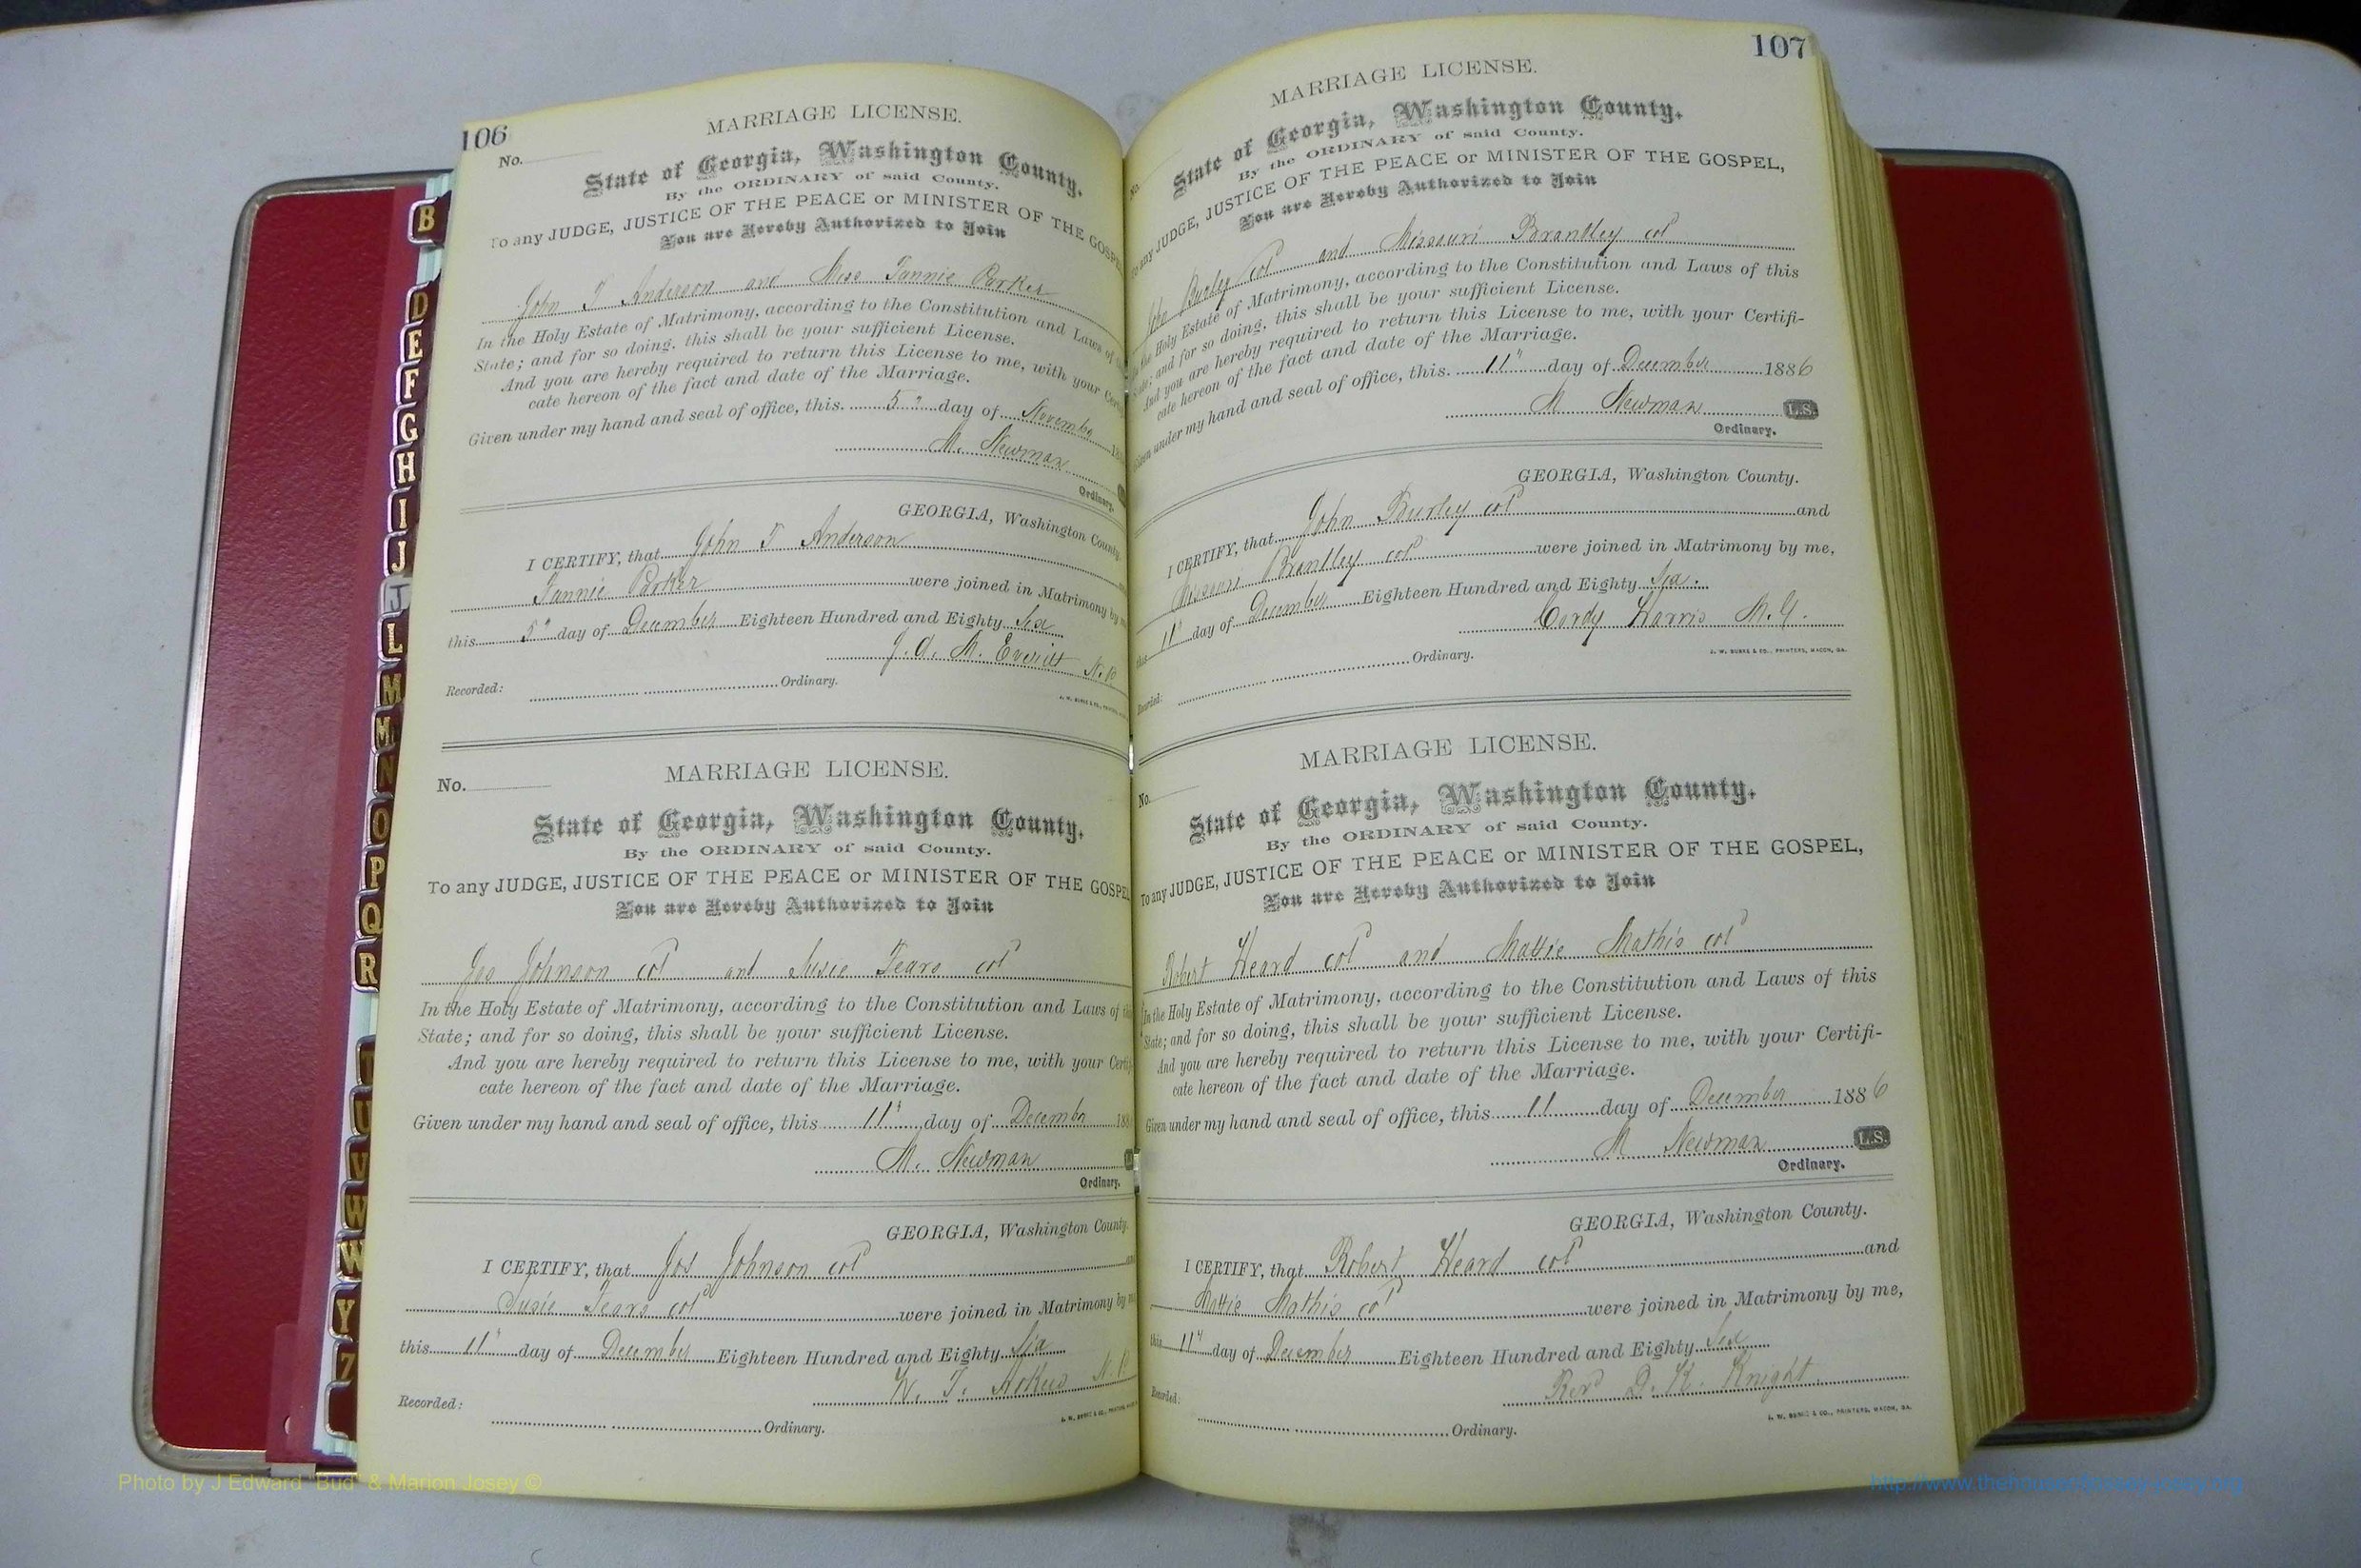 106
MARRIAGE LICENSE.
No.
State of Georgia, Washington County.
By the ORDINARY of said County.
To any JUDGE, JUSTICE OF THE PEACE or MINISTER OF THE GOSPEL
You are Hereby Authorized to Join
John T Anderson and Miss Fannie Parker
In the Holy Estate of Matrimony, according to the Constitution and Laws of
State; and for so doing, this shall be your sufficient License.
And you are hereby required to return this License to me, with your Certifi
cate hereon of the fact and date of the Marriage.
Given under my hand and seal of office, this 5" day of November 18
M. Newman
Ordinary.
GEORGIA, Washington County.
I CERTIFY, that John T Anderson
Fannie Parker were joined in Matrimony by
this 5" day of December Eighteen Hundred and Eighty Six
J. A. M. Everitt N.P.
Recorded: Ordinary.
J. W. BURKE & CO., PRINTERS,
No.
MARRIAGE LICENSE.
State of Georgia, Washington County.
By the ORDINARY of said County.
To any JUDGE, JUSTICE OF THE PEACE or MINISTER OF THE GOSPEL
You are Hereby Authorized to Join
Jos Johnson col and Susie Fears col
In the Holy Estate of Matrimony, according to the Constitution and Laws of this
State; and for so doing, this shall be your sufficient License.
And you are hereby required to return this License to me, with your Certifi
cate hereon of the fact and date of the Marriage.
Given under my hand and seal of office, this 11" day of December 188
M. Newman
Ordinary.
GEORGIA, Washington County.
I CERTIFY, that Jos Johnson col and
Susie Fears col were joined in Matrimony by me
this 11" day of December Eighteen Hundred and Eighty Six
N. T. N.P.
Recorded: Ordinary.
J. W. BURKE & CO., PRINTERS,
107
MARRIAGE LICENSE.
No.
State of Georgia, Washington County.
By the ORDINARY of said County.
To any JUDGE, JUSTICE OF THE PEACE or MINISTER OF THE GOSPEL,
You are Hereby Authorized to Join
Jno Burley col and Missouri Brantley col
the Holy Estate of Matrimony, according to the Constitution and Laws of this
State; and for so doing, this shall be your sufficient License.
And you are hereby required to return this License to me, with your Certifi-
cate hereon of the fact and date of the Marriage.
Given under my hand and seal of office, this 11" day of December 1886
M Newman L.S.
Ordinary.
GEORGIA, Washington County.
I CERTIFY, that John Burley col and
Missouri Brantley col were joined in Matrimony by me,
this 11" day of December Eighteen Hundred and Eighty Six.
Cordy Harris M.G.
Recorded: Ordinary.
J. W. BURKE & CO., PRINTERS, MACON, GA.
MARRIAGE LICENSE.
No.
State of Georgia, Washington County.
By the ORDINARY of said County.
To any JUDGE, JUSTICE OF THE PEACE or MINISTER OF THE GOSPEL,
You are Hereby Authorized to Join
Robert Heard col and Mattie Mathis col
In the Holy Estate of Matrimony, according to the Constitution and Laws of this
State; and for so doing, this shall be your sufficient License.
And you are hereby required to return this License to me, with your Certifi-
cate hereon of the fact and date of the Marriage.
Given under my hand and seal of office, this 11 day of December 1886
M Newman L.S.
Ordinary.
GEORGIA, Washington County.
I CERTIFY, that Robert Heard col and
Mattie Mathis col were joined in Matrimony by me,
this 11" day of December Eighteen Hundred and Eighty Six
Rev D. K. Knight
Recorded: Ordinary.
J. W. BURKE & CO., PRINTERS, MACON, GA.
B
D
E
F
G
H
I
J
J
L
M
M
N
O
P
Q
R
T
U
V
W
W
Y
Z
Photo by J Edward "Bud" & Marion Josey ©